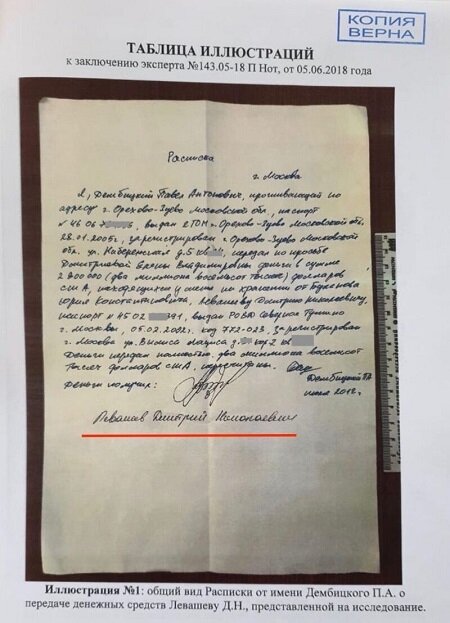 КОПИЯ
ВЕРНА
ТАБЛИЦА ИЛЛЮСТРАЦИЙ
к заключению эксперта №143.05-18 П Нот, от 05.06.2018 года
Расписка
г. Москва
Я, Дембицкий Павел Антонович, проживающий по
адресу г. Орехово-Зуево Московской обл., паспорт
N 46 06 выдан 2 ГОМ г. Орехово-Зуево Московской обл.
28.01.2005г, зарегистрирован г. Орехово-Зуево Московской
обл. ул. Набережная д.5 кв передал по просьбе
Дмитриевой Елены Владимировны деньги в сумме
2 800000 (два миллиона восемьсот тысяч) долларов
США, находящиеся у меня на хранении от
Юрия Константиновича, Левашеву Дмитрию Николаевичу,
паспорт N 45 02 391, выдан РОВД Северное Тушино
г. Москвы, 05.02.2002г. код 772-023, зарегистрирован
г. Москва ул. Вилиса Лациса д. кор 2 кв
Деньги передал полностью два миллиона восемьсот
тысяч долларов США,
Дембицкий ПА
Деньги получил:
июль 2012г.
Левашев Дмитрий Николаевич
Иллюстрация №1: общий вид Расписки от имени Дембицкого П.А. о
передаче денежных средств Левашеву Д.Н., представленной на исследование.